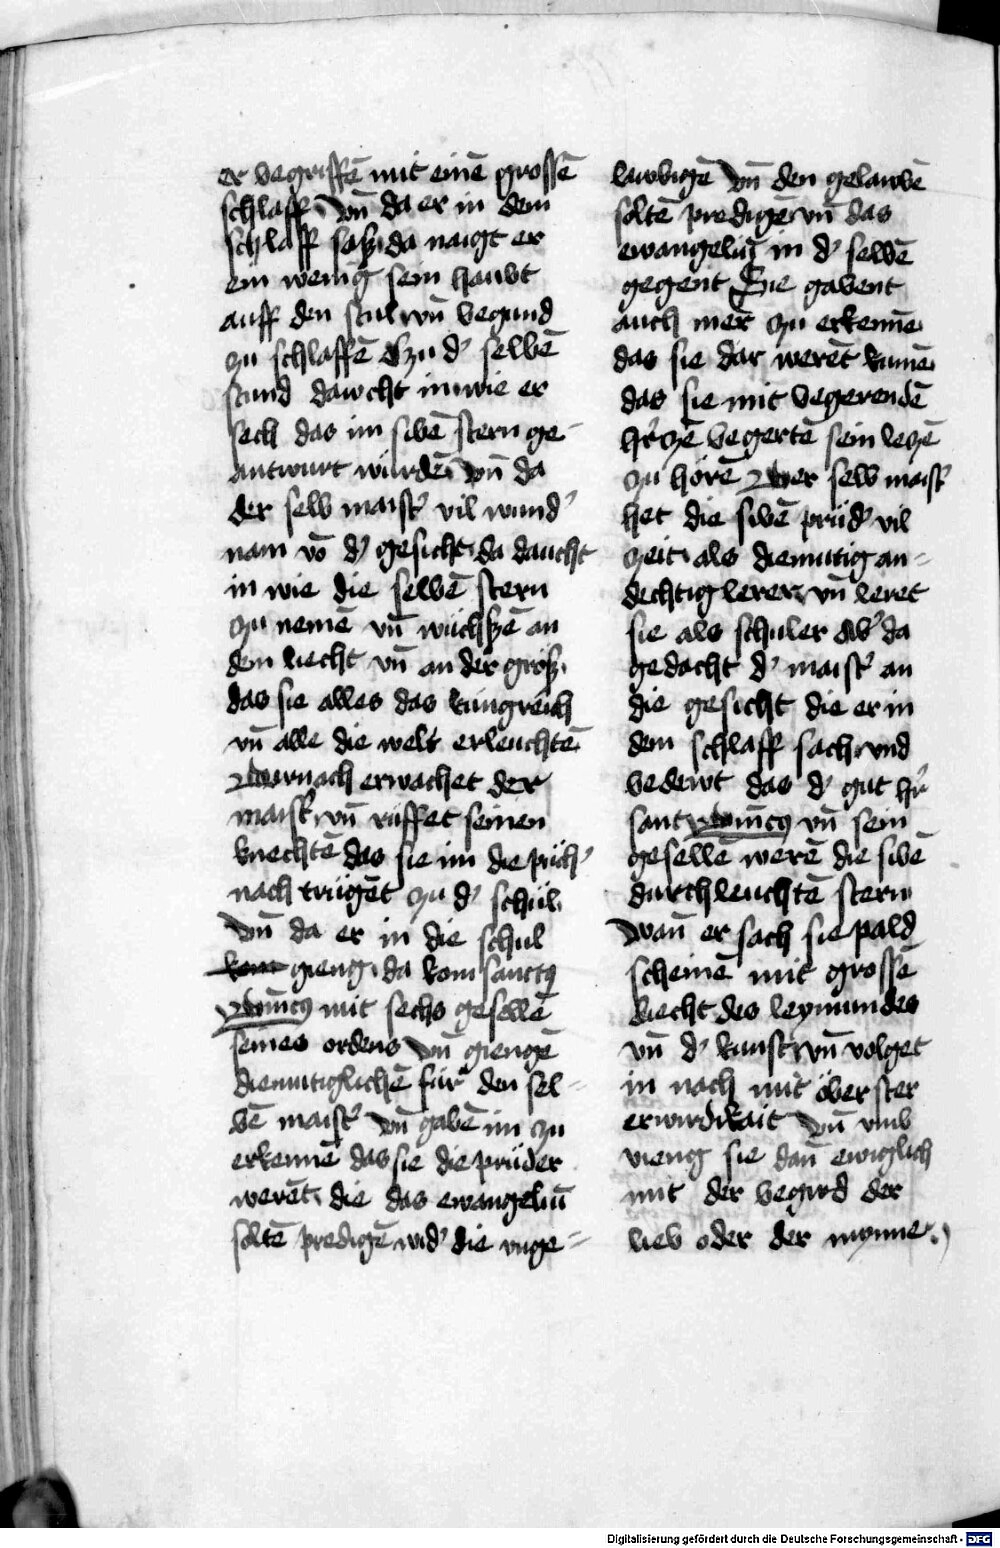 er begriffē mit einē grossē
schlaff Vn̄ da er in dem
schlaff sasz da naigt er
ein wenig sein haubt
auff den stul vn̄ begund
zu schlaffē Zu dʼ selbē
stund dawcht im wie er
sech das im sibē stern ge-
antwurt wurdē Vn̄ da
der selb maistʼ vil wundʼ
nam vō dʼ gesicht da daucht
in wie die selbē stern
zu nemē vn̄ wuchszē an
dem liecht vn̄ an der grosz
das sie alles das kungreich
vn̄ alle die welt erleuchtē
Darnach erwachet der
maistʼ vn̄ ruffet seinen
knechtē das sie im die puchʼ
nach trugēt zu dʼ schul
Vn̄ da er in die schul
kom gieng da kom sanctꝰ
Dm̄icꝰ mit sechs gesellē
seines ordens Vn̄ giengē
diemutiglichē für den sel-
bē maistʼ Vn̄ gabē im zu
erkennē das sie die prüder
werēt die das ewangeliū
soltē predigē widʼ die vnge-
lawbigē Vn̄ den gelawbē
soltē predigē vn̄ das
ewangeliū in dʼ selbē
gegent Sie gabent
auch mer zu erkennē
das sie dar werēt kumē
das sie mit begerendē
hʼtzē begertē sein letzē
zu hörē Der selb maistʼ
het die sibē prüdʼ vil
zeit als diemutig an-
dechtig lerer vn̄ leret
sie als schuler Abʼ da
gedacht dʼ maistʼ an
die gesicht die er in
dem schlaff sach vnd
bedewt das dʼ gut hʼr
sant Dm̄icꝰ vn̄ sein
gesellē werē die sibē
durchleuchtē stern
Wan̄ er sach sie pald
scheinē mit grossē
liecht des leymundes
vn̄ dʼ kunst vn̄ volget
in nach mit öberster
erwirdikait Vn̄ vmb
vieng sie dan̄ ewiglich
mit der begird der
lieb oder der mynne
Digitalisierung gefördert durch die Deutsche Forschungsgemeinschaft - DFG